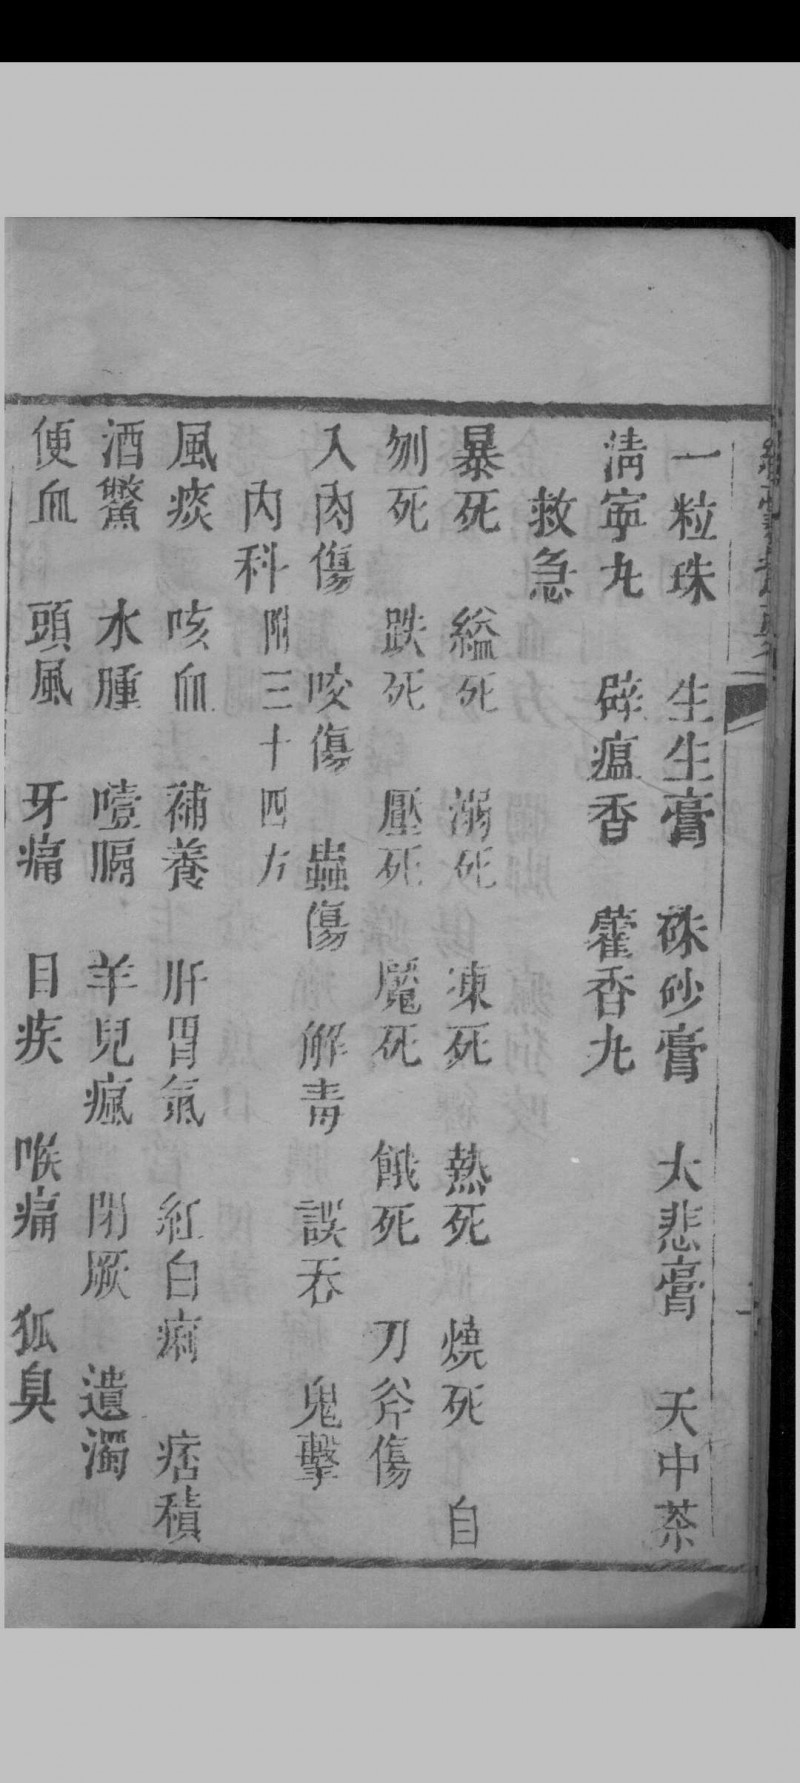 一粒珠　生生膏　硃砂膏　大悲膏　天中茶
清寧丸　辟瘟香　藿香丸
救急
暴死　縊死　溺死　凍死　熱死　燒死　自
刎死　跌死　壓死　魘死　餓死　刀斧傷
入肉傷　咬傷　蟲傷　解毒　誤吞　鬼擊
內科附三十四方
風痰　咳血　補養　肝胃氣　紅白痢　痞積
酒鱉　水腫　噎膈　羊兒瘋　閉厥　遺濁
便血　頭風　牙痛　目疾　喉痛　狐臭